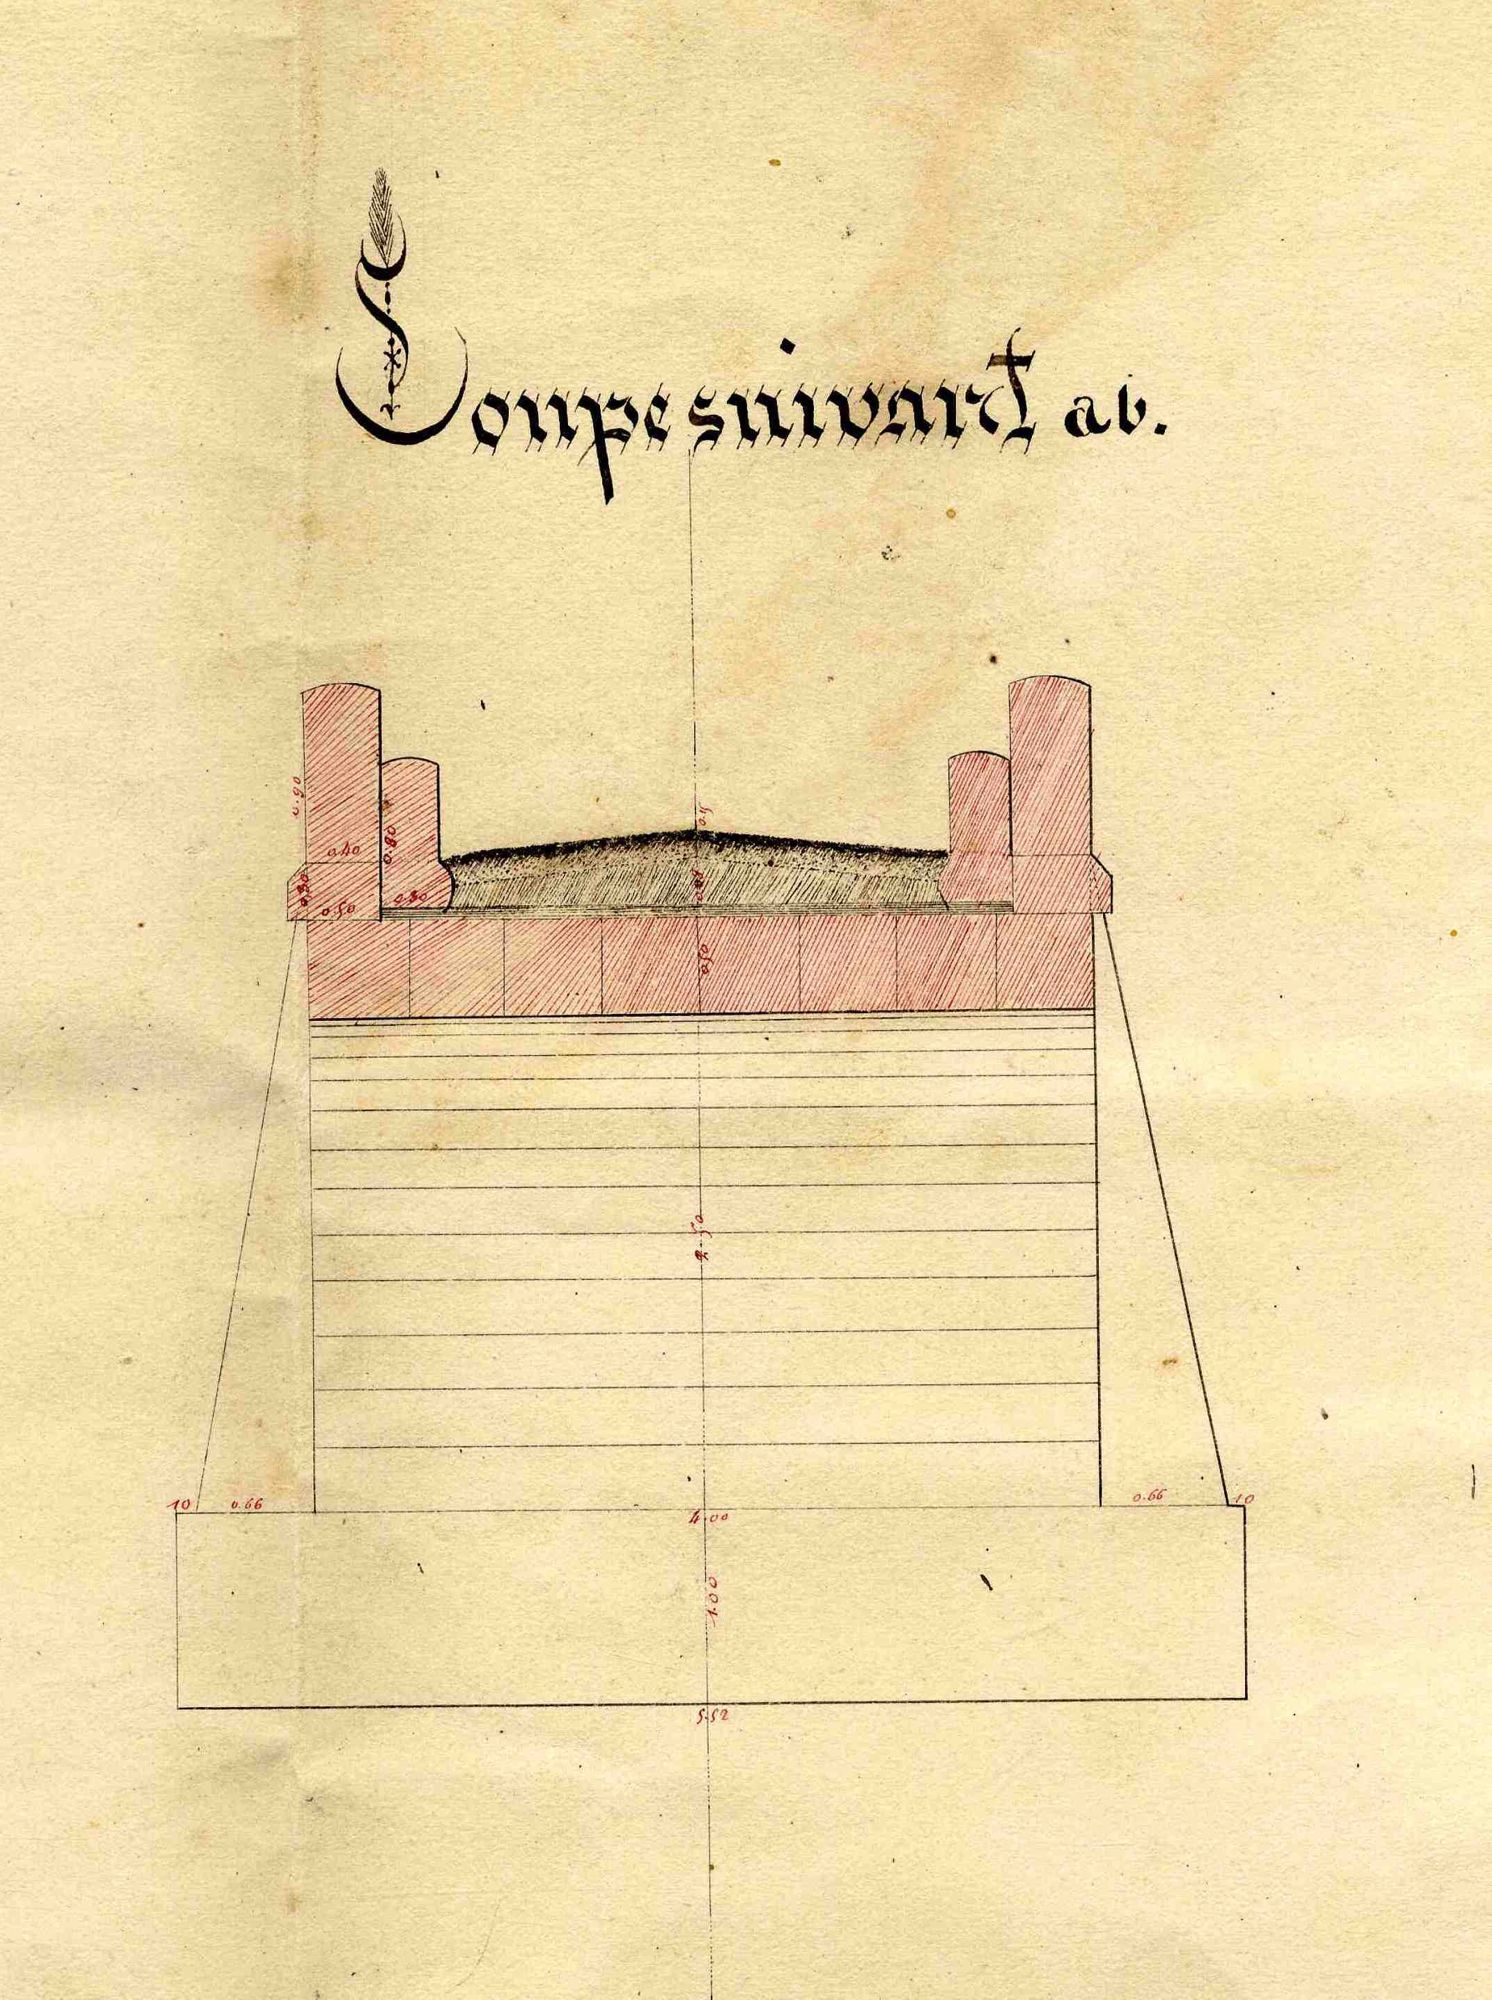 Coupe suivant ab.
0.15
0.90
0.40
0.80
0.30
0.50
0.30
0.50
2.50
10
0.66
4.00
0.66
10
1.00
5.52